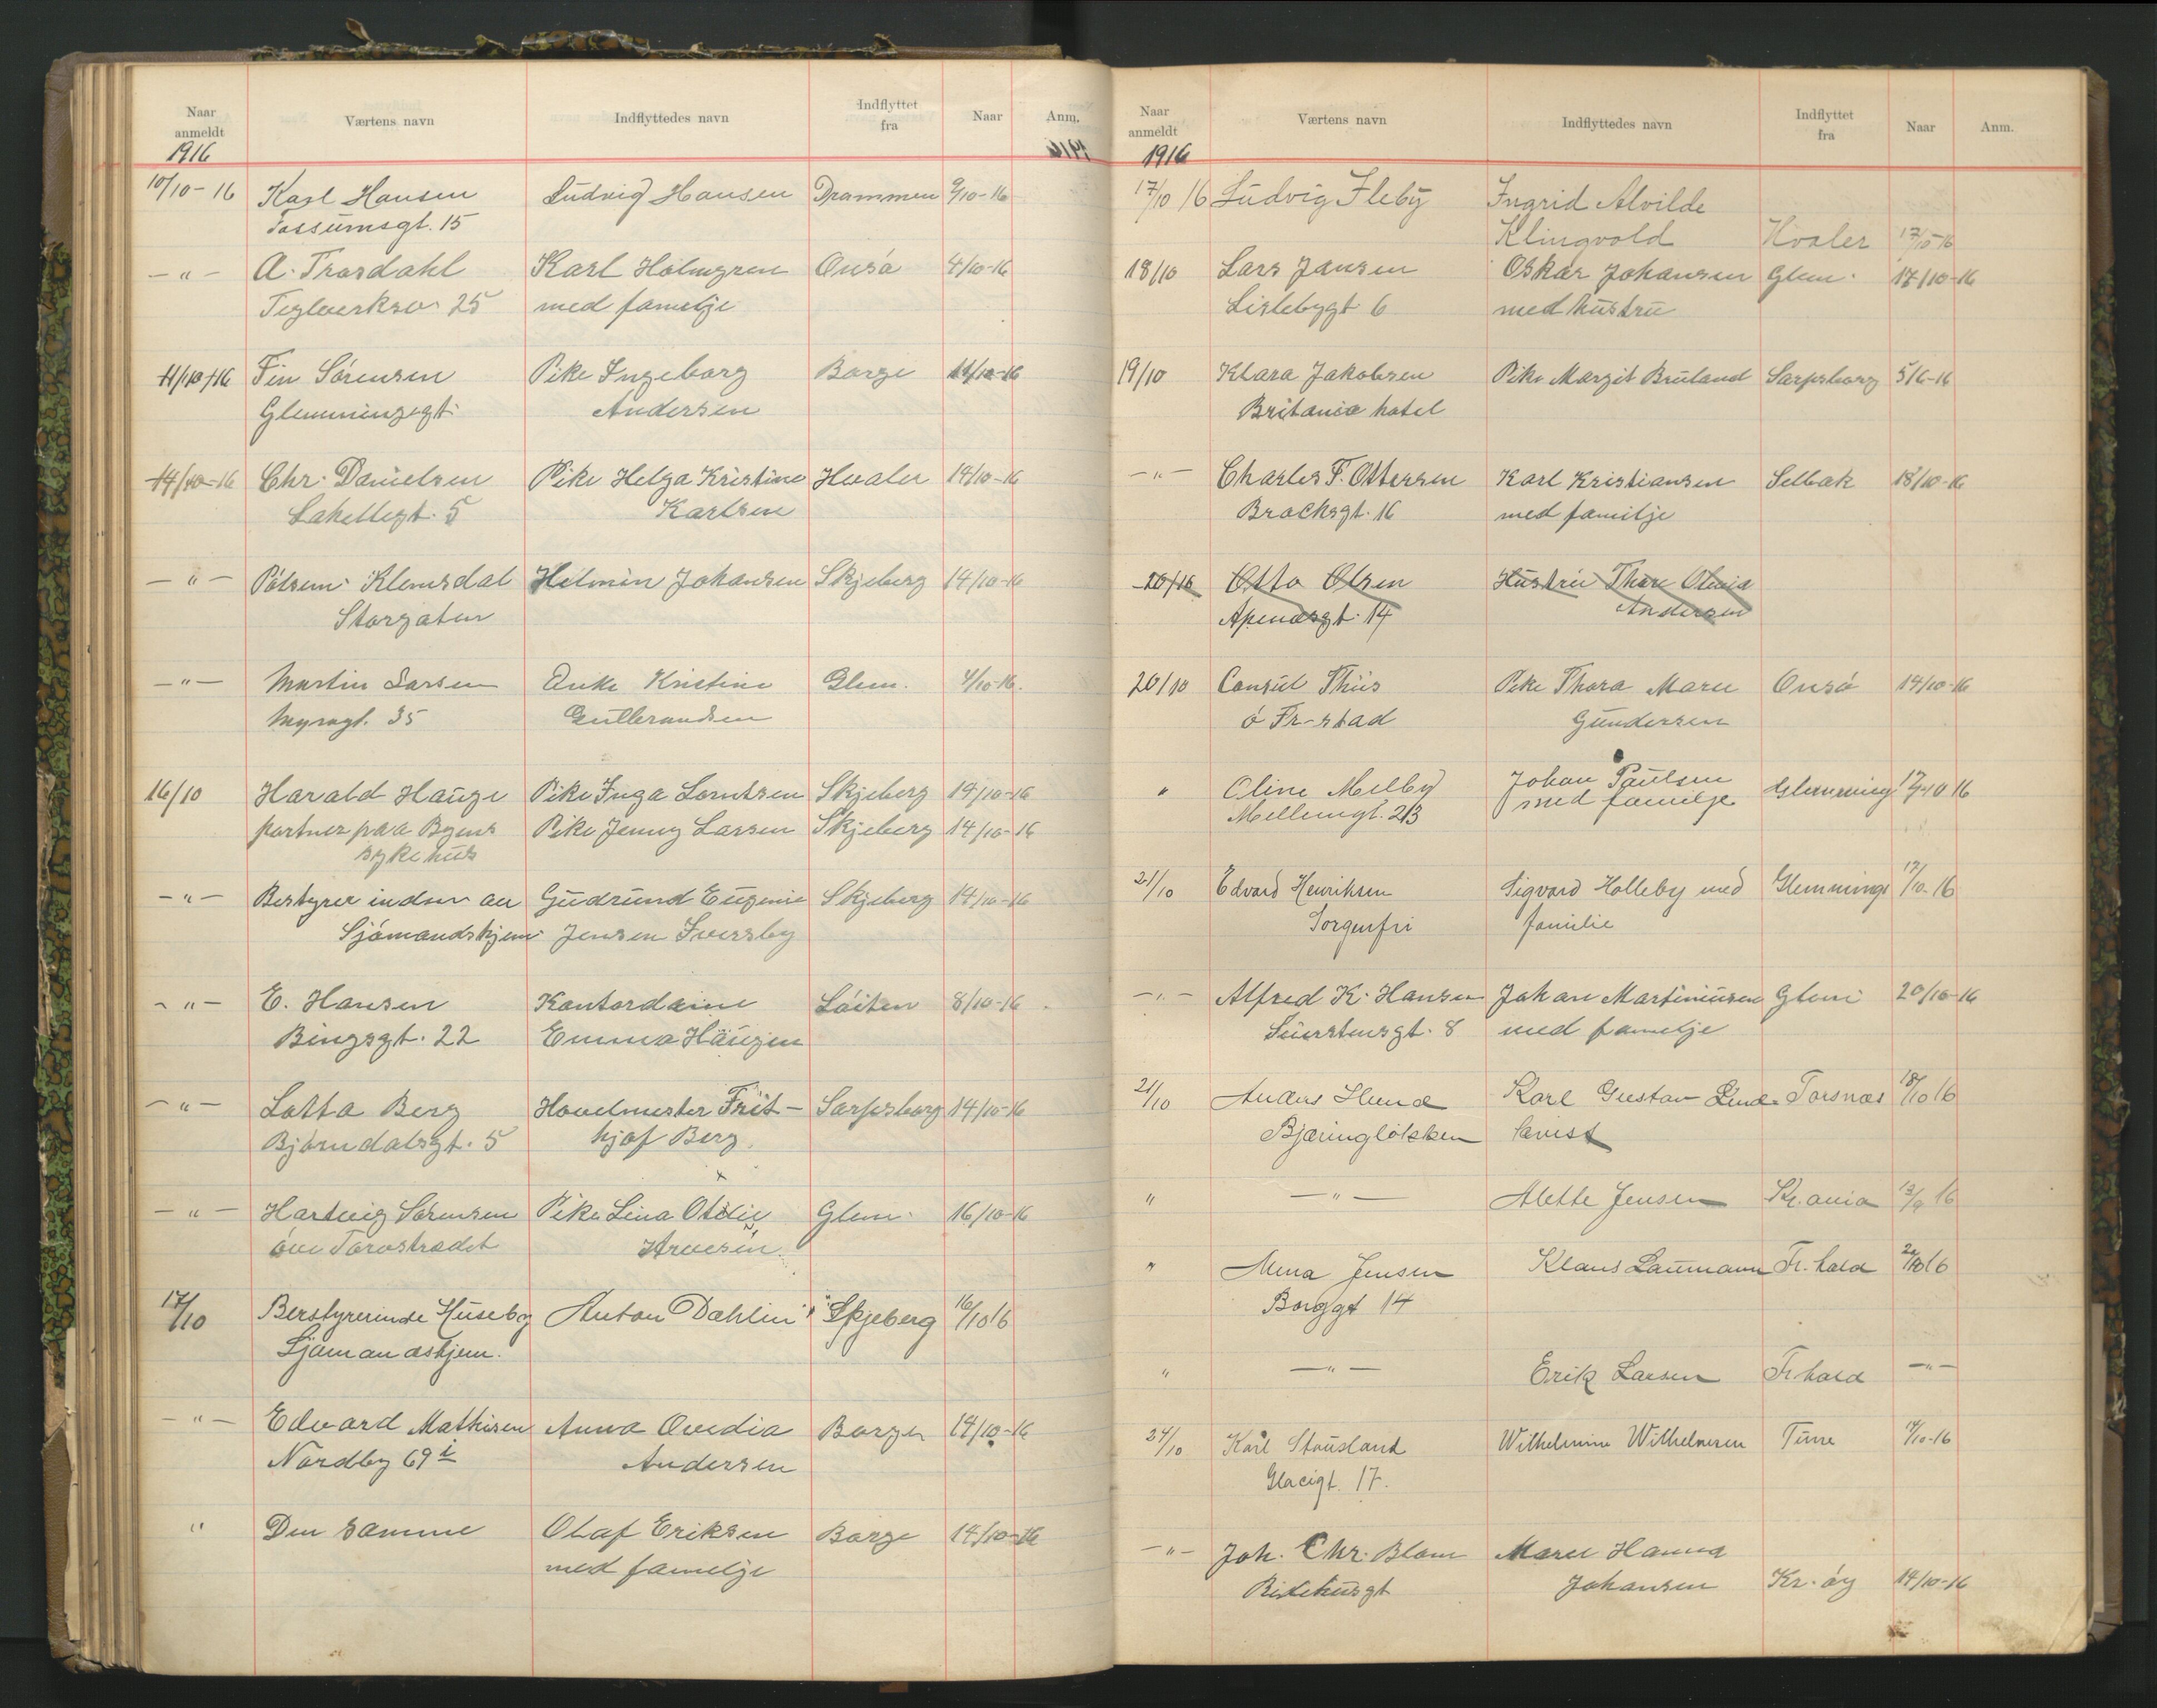 Naar anmeldt Værtens navn Indflyttedes navn Indflyttet fra Naar Anm.
1916
10/10-16 Karl Hansen Ludvig Hansen Drammen 9/10-16
Tossumsgt. 15
-"- A. Trosdahl Karl Holmgren Onsö 4/10-16
Teglverksv. 25 med familje
11/10-16 Fin Sörensen Pike Ingeborg Borge 11/10-16
Glemmingegt. Andersen
14/10-16 Chr. Danielsen Pike Helga Kristine Hvaler 14/10-16
Lakellegt. 5 Karlsen
-"- Pölsem. Klemsdal Hilmin Johansen Skjeberg 14/10-16
Storgaten
-"- Martin Larsen Enke Kristine Glem. 4/10-16.
Myragt. 35 Gulbrandsen
16/10 Harald Hauge Pike Inga Lorntsen Skjeberg 14/10-16
portner paa Byens Pike Jenny Larsen Skjeberg 14/10-16
sykehus
-"- Bestyrer inden av Gudrund Eugenie Skjeberg 14/10-16
Sjömandshjem Jensen Iversby
-"- E. Hansen Kontordame Löiten 8/10-16
Bingsgt. 22 Emma Haugen
-"- Lotta Berg Hovelmester Frit- Sarpsborg 14/10-16
Björndalsgt. 5 hjof Berg
-"- Hartvig Sörensen Pike Lina Otilie Glem. 16/10-16
öve Torvstrædet Arvesen
17/10 Berstyrerinde Huseby Anton Dahlin Skjeberg 16/10 16
Sjømandshjem.
-"- Edvard Mathisen Anna Ovedia Borge 14/10-16
Nordby 69 i Andersen
" Den samme Olaf Eriksen Borge 14/10-16
med familje
Naar anmeldt Værtens navn Indflyttedes navn Indflyttet fra Naar Anm.
1916
17/10 16 Ludvig Fleby Ingrid Alvilde
Klingvold Hvaler 17/10-16
18/10 Lars Jansen Oskar Johansen Glem. 17/10-16
Lislebygt 6 med hustru
19/10 Klara Jakobsen Pike Margit Bruland Sarpsborg 5/6-16
Britania hotel
-"- Charles F. Ottersen Karl Kristiansen Selbak 18/10-16
Brochsgt. 16 med familje
20/10 Otto Olsen Hustru Thora Olivia
Apenesgt. 14 Andersen
20/10 Consul Thiis Pike Thora Marie Onsö 14/10-16
ö Fr-stad Gundersen
" Oline Melby Johan Paulsen Glemming 17/10 16
Mellemgt. 23 med familje
21/10 Edvard Henriksen Sigvard Holleby med Glemminge 17/10-16
Sorgenfri familie
-"- Alfred K. Hansen Johan Martiniusen Glem 20/10-16
Suerstensgt. 8 med familje
21/10 Anders Lund Karl Gustav Lind- Torsnæs 18/10 16
Bjæringløkken kvist
" -"- Alette Jensen Kr.ania 13/9 16
" Mina Jensen Klaus Laumann Fr.hald 20/10 16
Borggt 14
" -"- Erik Larsen Fr hald -"-
24/10 Karl Stousland Wilhelmine Wilhelmsen Tune 4/10-16
Glacigt. 17.
-"- Joh. Chr. Blom Marie Hanna
Ridehusgt Johansen Kr. öy 14/10-16